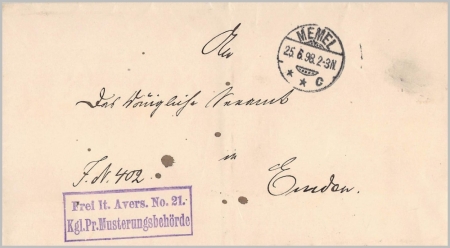 An
MEMEL
25.6.98.2-3N.
* * c
Das Königliche Seeamt
F. N. 402.
in
Emden.
Frei lt. Avers. No. 21.
Kgl.Pr.Musterungsbehörde